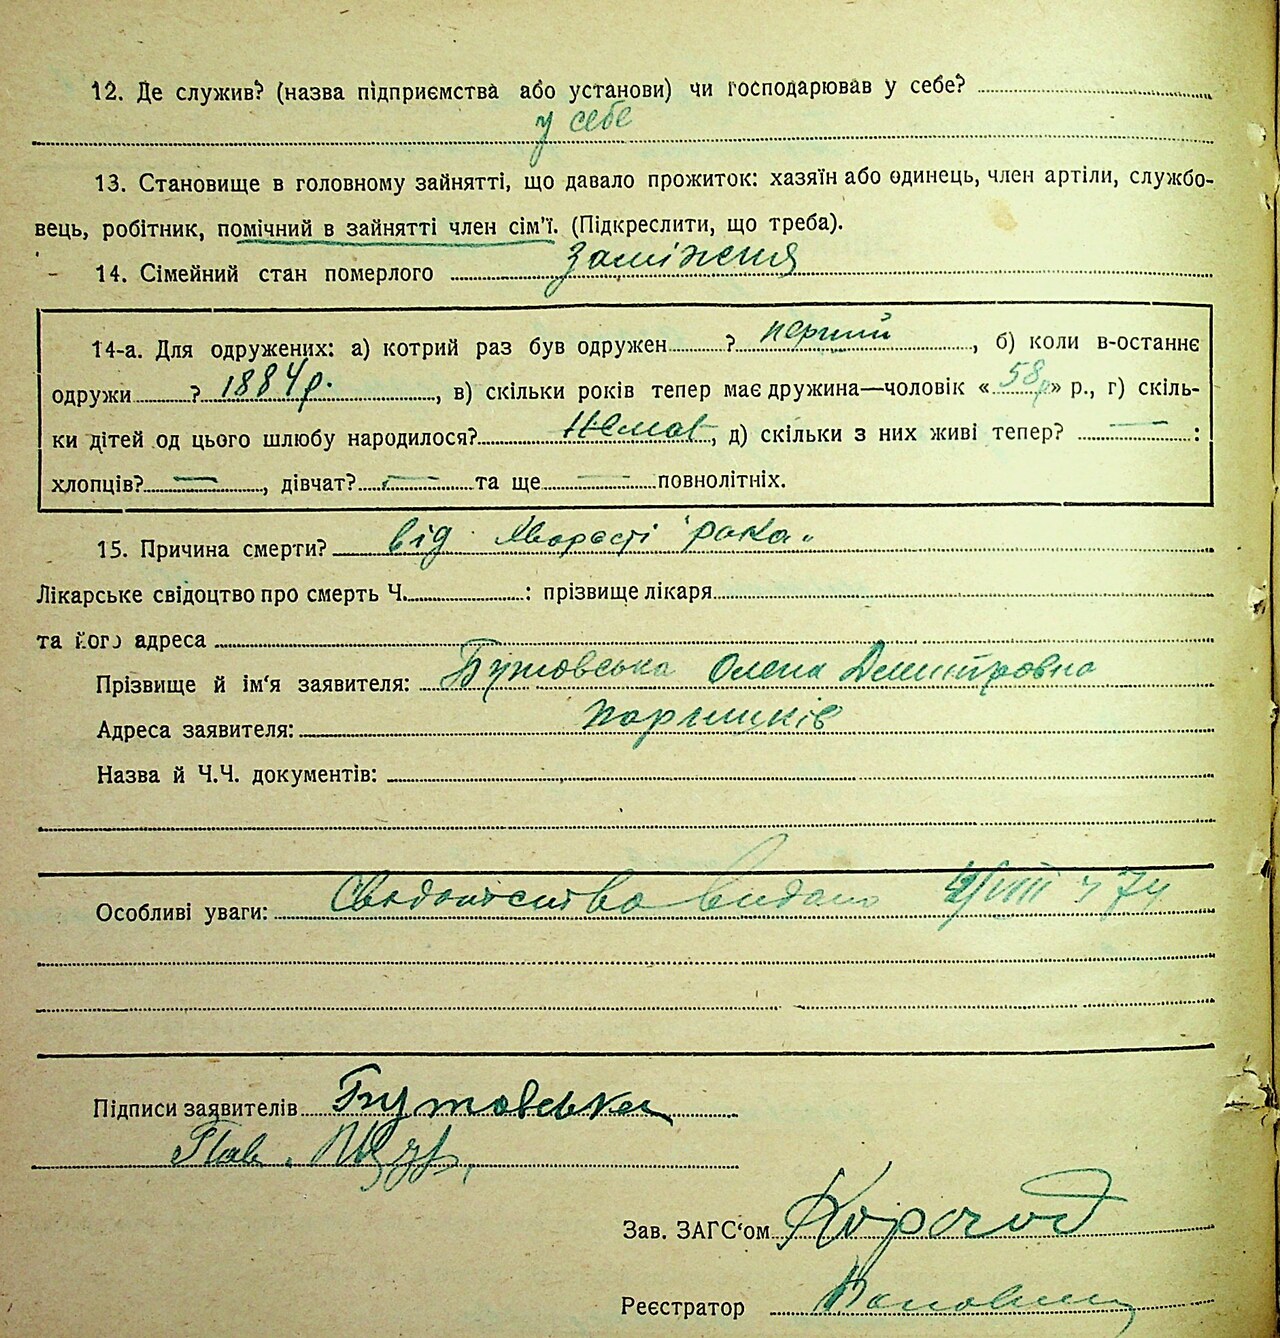 12. Де служив? (назва підприємства або установи) чи господарював у себе?
у себе
13. Становище в головному зайнятті, що давало прожиток: хазяїн або одинець, член артіли, службо-
вець, робітник, помічний в зайнятті член сім'ї. (Підкреслити, що треба).
14. Сімейний стан померлого заміжня
14-а. Для одружених: а) котрий раз був одружен ? перший, б) коли в-останнє
одружи ? 1884 р., в) скільки років тепер має дружина—чоловік «58 р» р., г) скіль-
ки дітей од цього шлюбу народилося? Немає, д) скільки з них живі тепер? — :
хлопців? —, дівчат? — та ще — повнолітніх.
15. Причина смерти? від хворості "рака"
Лікарське свідоцтво про смерть Ч. : прізвище лікаря
та його адреса
Прізвище й ім'я заявителя: Бутовська Олена Дмитровна
Адреса заявителя:
Назва й Ч.Ч. документів:
Особливі уваги: видано
Підписи заявителів Бутовська
Зав. ЗАГС'ом
Реєстратор